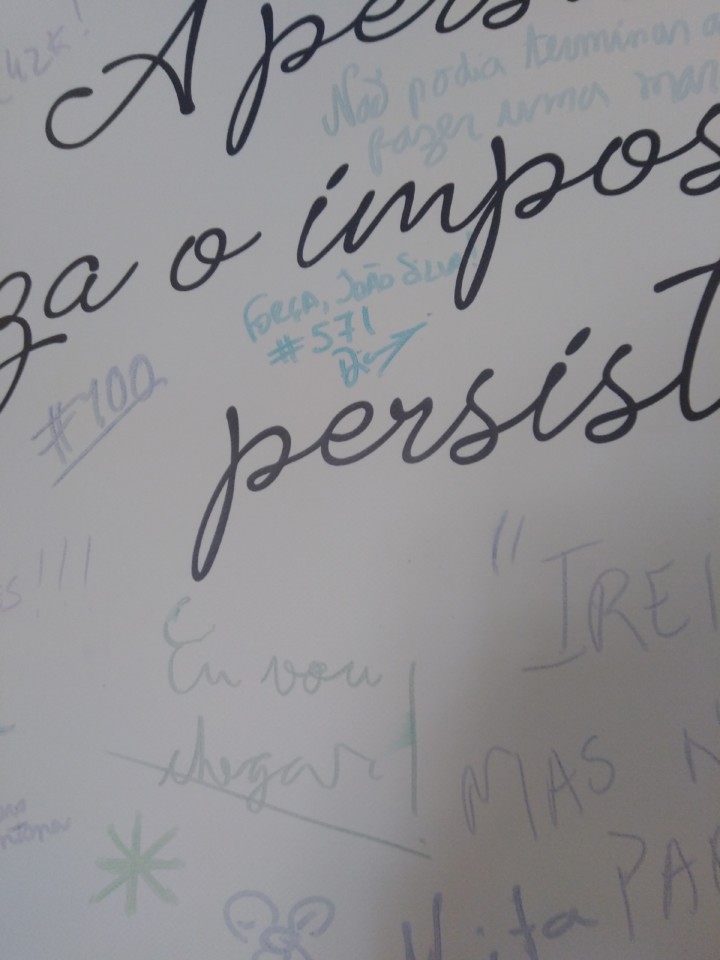 42K!
A pers
Não podia terminar
fazer uma
za o impos
FORÇA, JOÃO SILVA!
#571
#100
persist
s!!!
"IREI
Eu vou
chegar!
MAS N
ntana
PAR